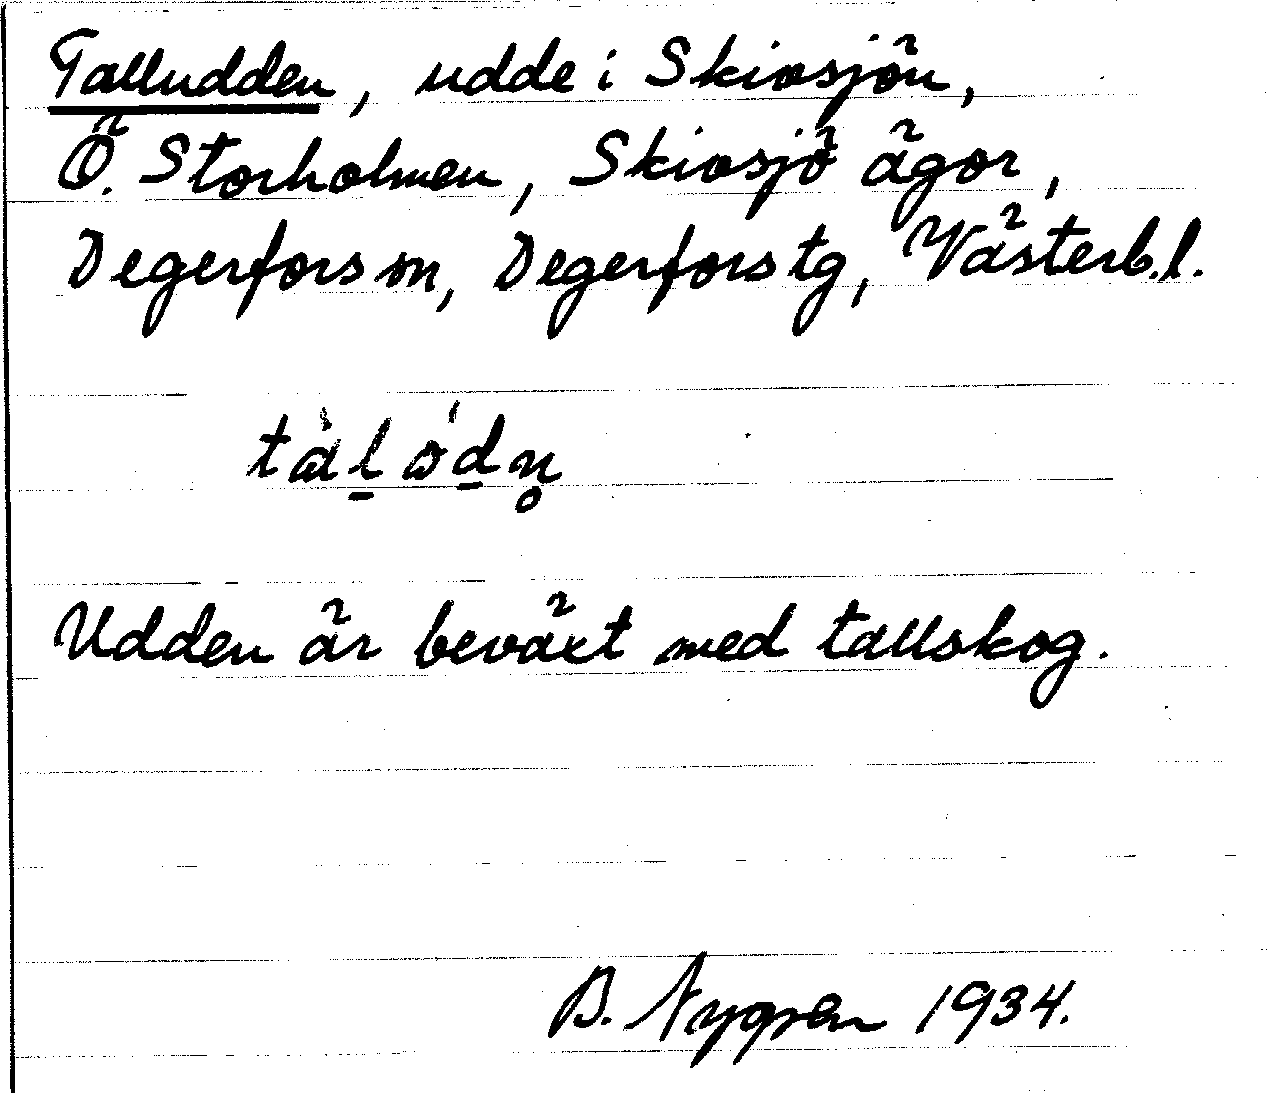 Talludden, udde i Skivsjön,
Ö. Storholmen, Skivsjö ägor,
Degerfors sn, Degerfors tg, Västerb.l.
Udden är beväxt med tallskog.
B. Nygren 1934.